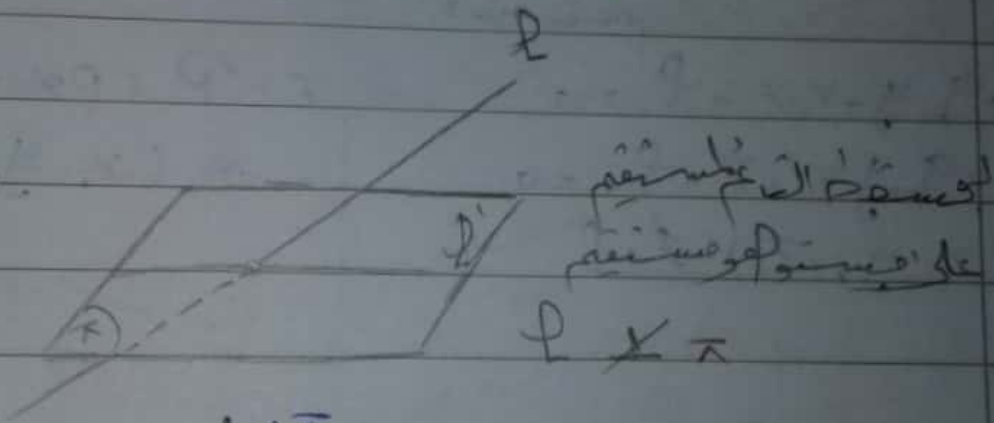 ℓ
المسقط العام لمستقيم
ℓ'
على مستو هو مستقيم
π
ℓ ⊥̸ π